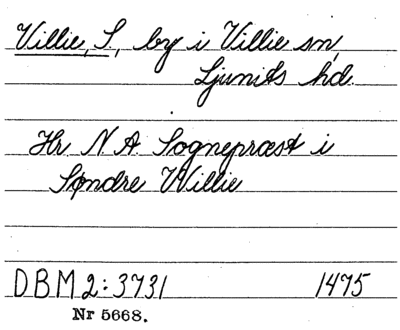 Villie, S., by i Villie sn,
Ljunits hd.
Hr. N. A. Sognepræst i
Søndre Willie
DBM 2: 3731 1475
Nr 5668.